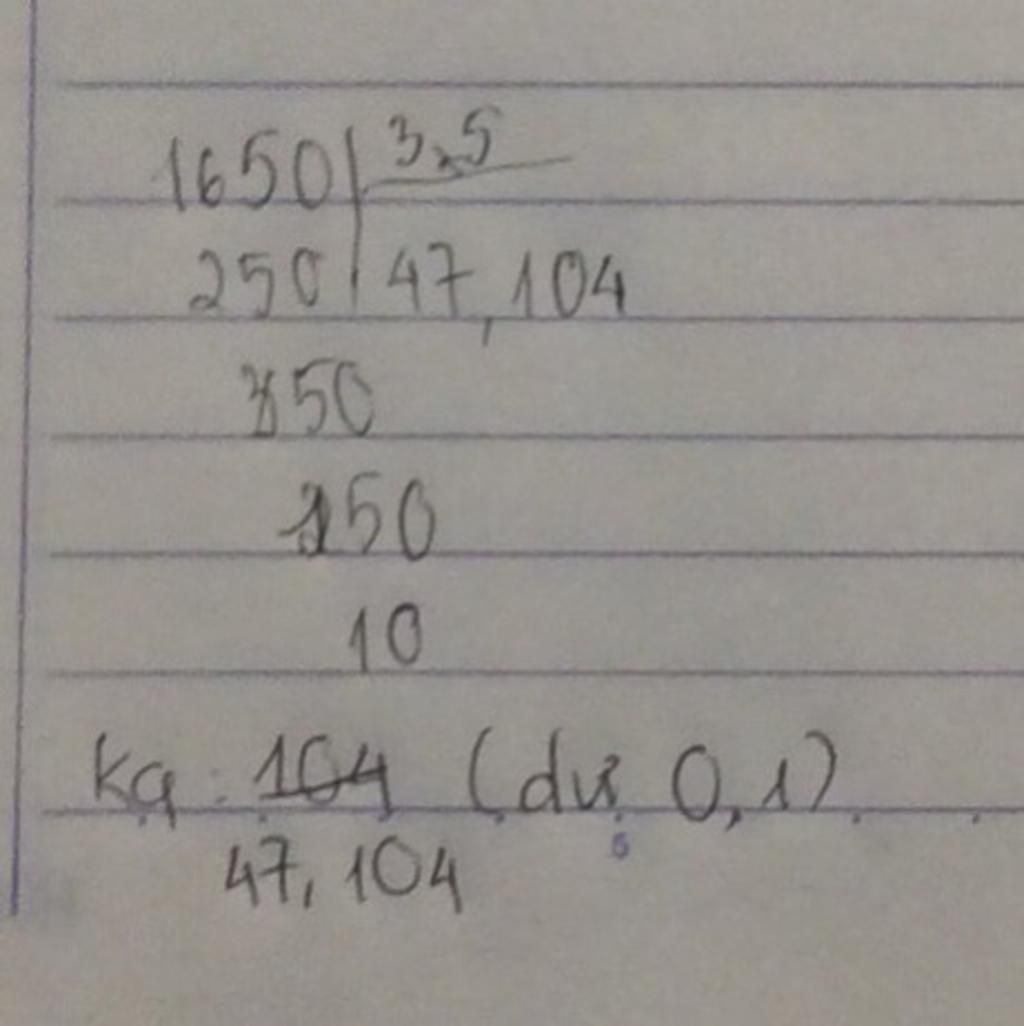 1650 3,5
250 47,104
150
150
10
Kq: 104 (dư 0,1)
47,104